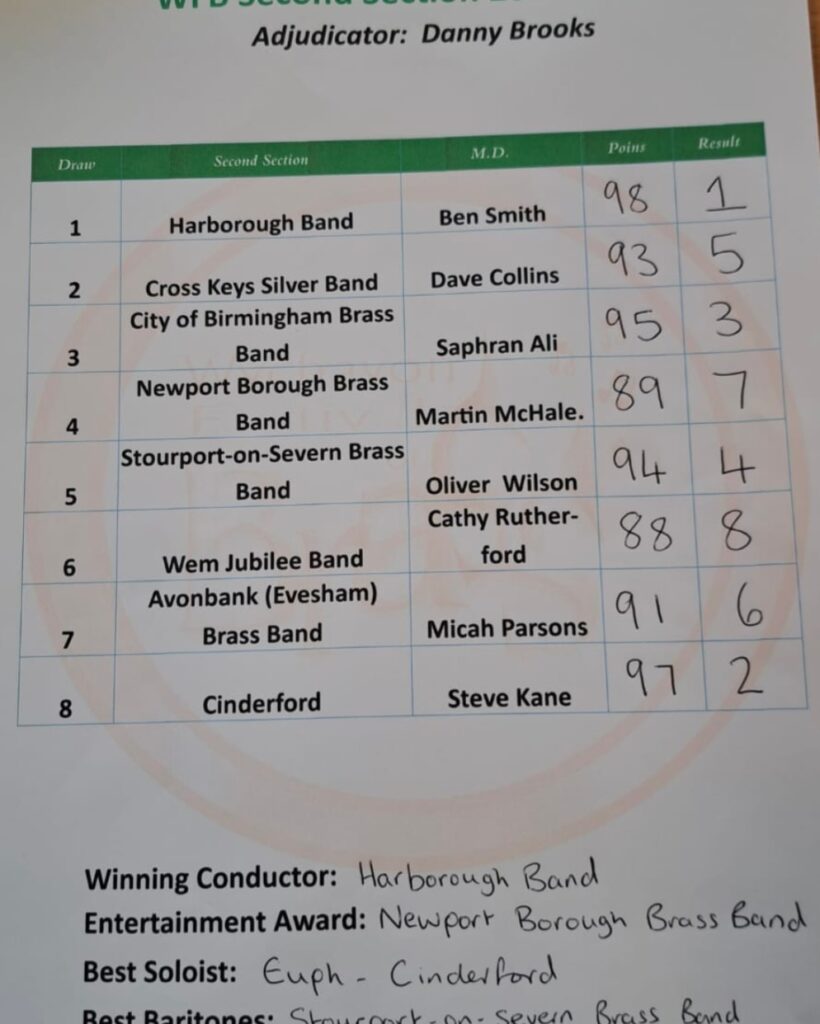 WFB Second Section
Adjudicator: Danny Brooks
Draw Second Section M.D. Poins Result
1 Harborough Band Ben Smith 98 1
2 Cross Keys Silver Band Dave Collins 93 5
City of Birmingham Brass
3 Band Saphran Ali 95 3
Newport Borough Brass
4 Band Martin McHale. 89 7
Stourport-on-Severn Brass
5 Band Oliver Wilson 94 4
Cathy Ruther-
6 Wem Jubilee Band ford 88 8
Avonbank (Evesham)
7 Brass Band Micah Parsons 91 6
8 Cinderford Steve Kane 97 2
Winning Conductor: Harborough Band
Entertainment Award: Newport Borough Brass Band
Best Soloist: Euph - Cinderford
Best Baritones: Stourport-on-Severn Brass Band